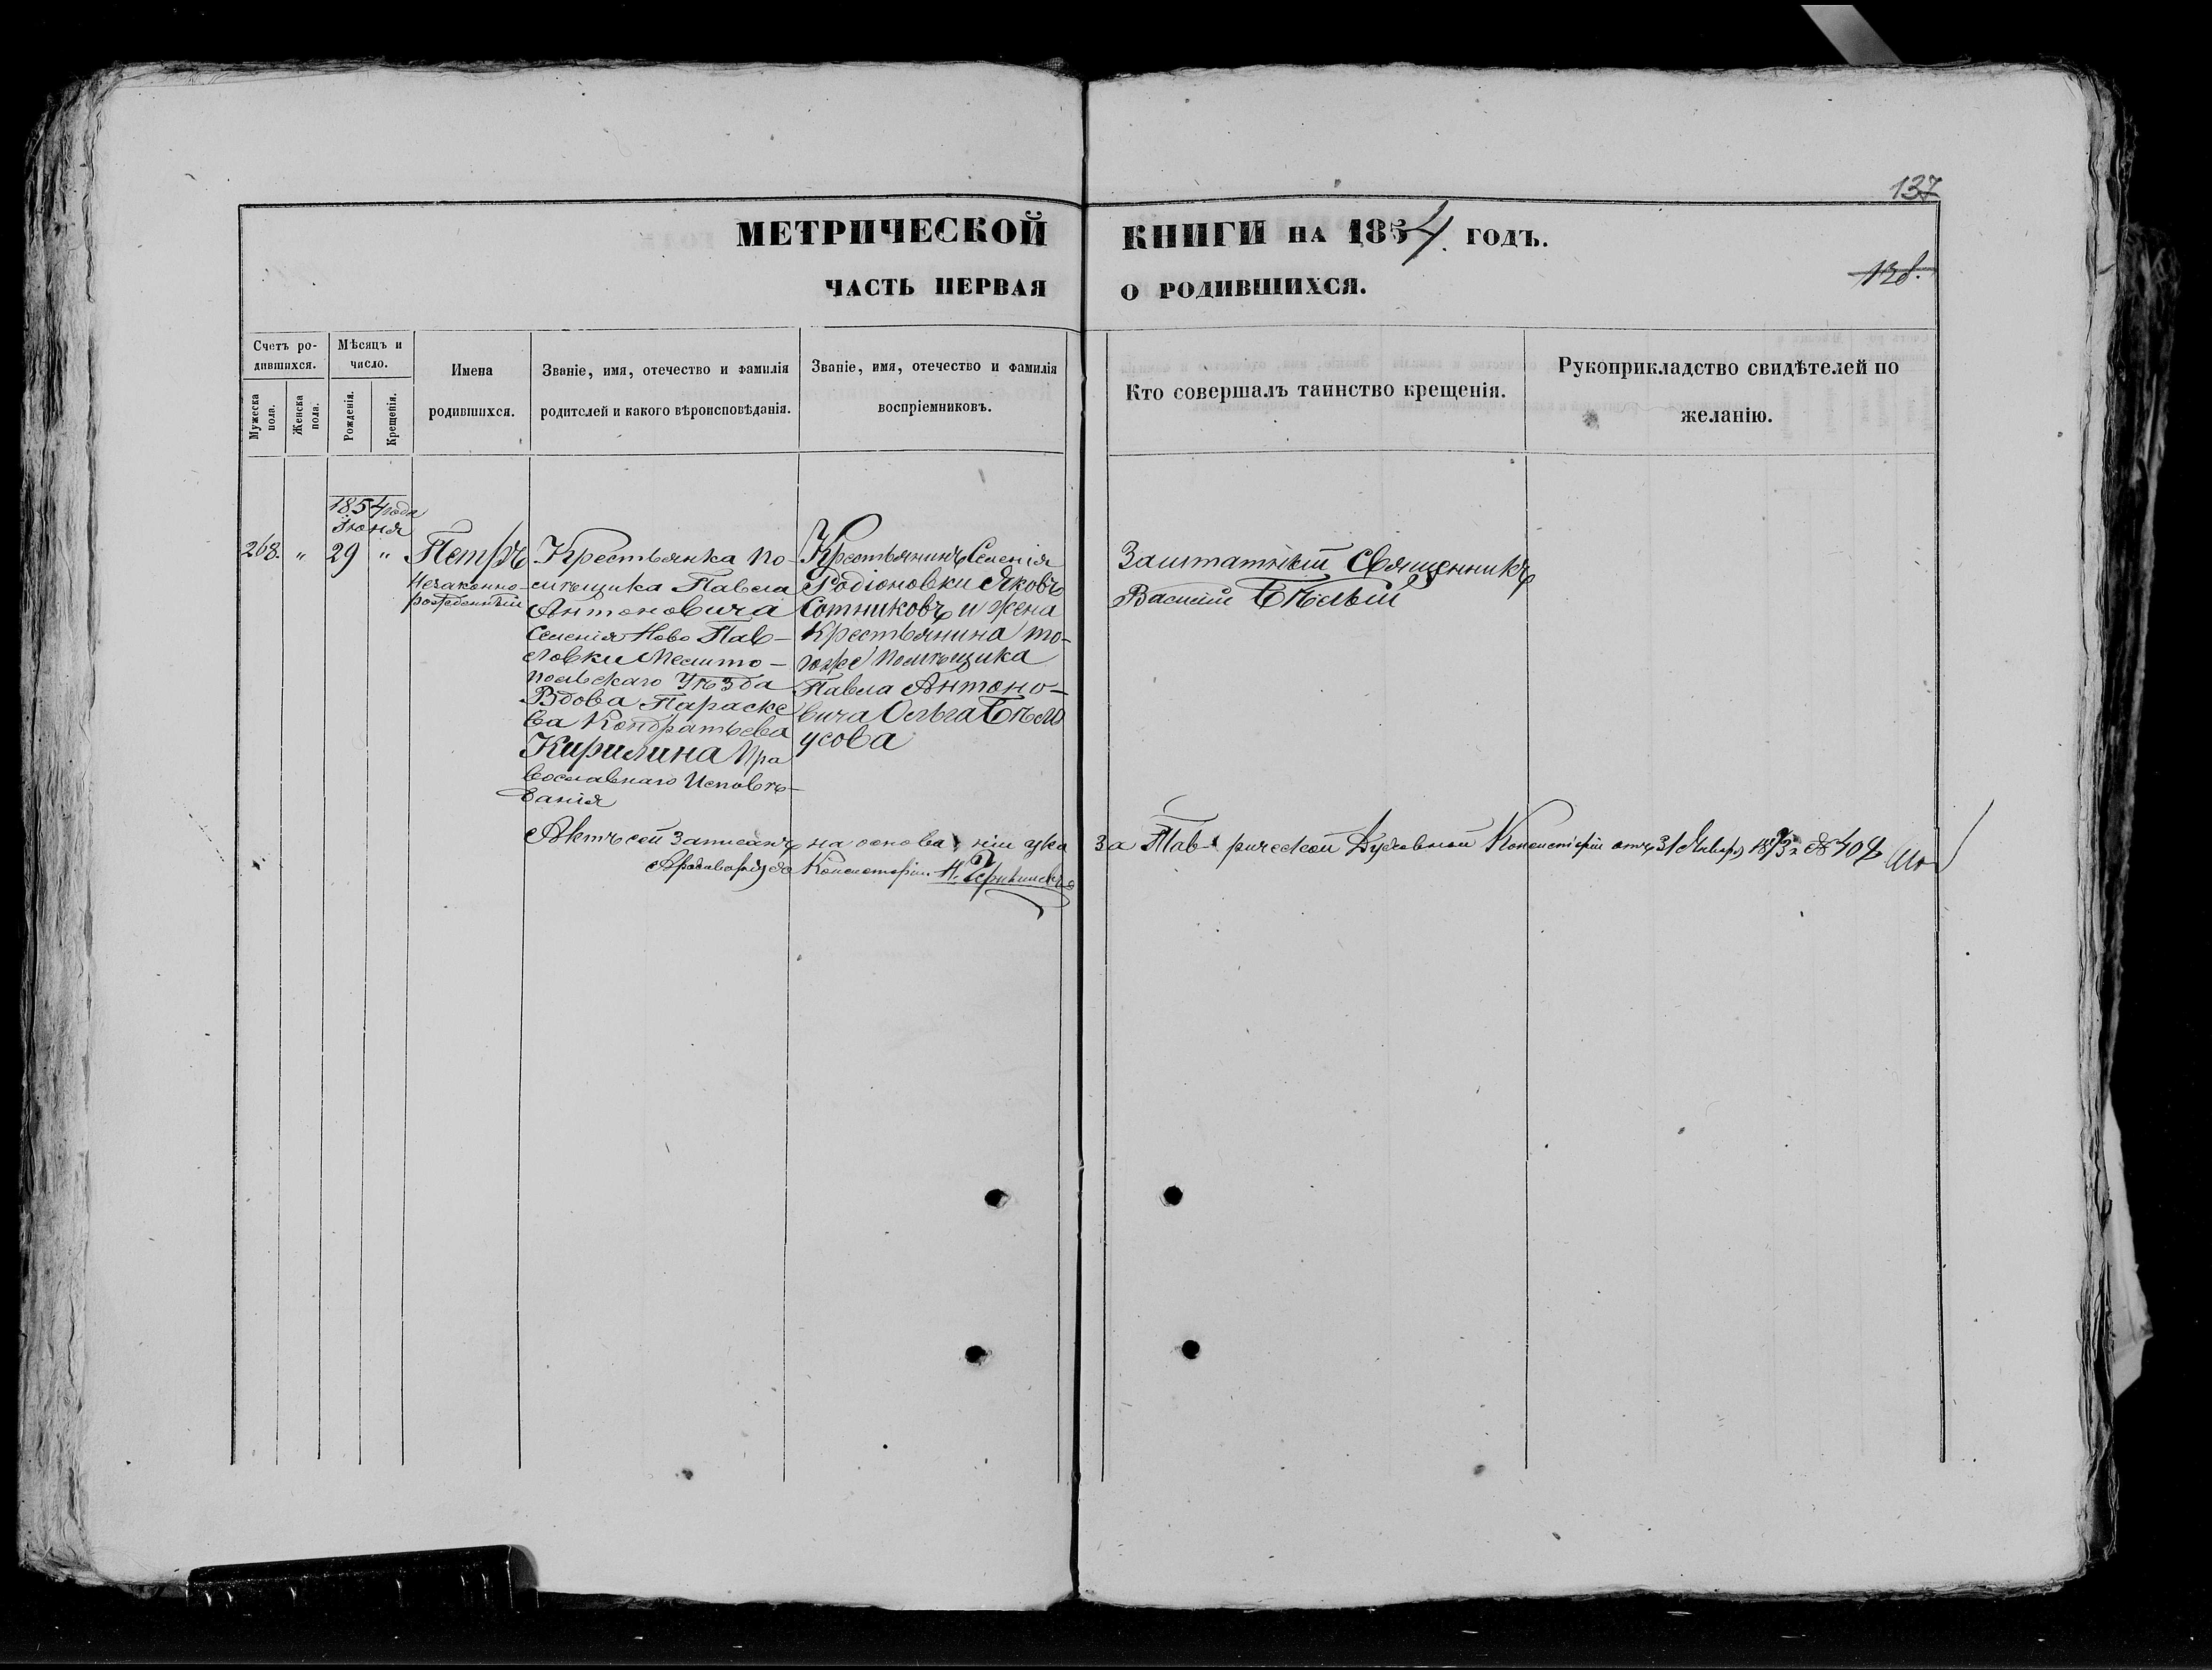 137
МЕТРИЧЕСКОЙ КНИГИ НА 1854 ГОДЪ.
128.
ЧАСТЬ ПЕРВАЯ О РОДИВШИХСЯ.
Счетъ ро-
дившихся.
Мужеска пола.
Женска пола.
Мѣсяцъ и
число.
Рожденія.
Крещенія.
Имена
родившихся.
Званіе, имя, отечество и фамилія
родителей и какого вѣроисповѣданія.
Званіе, имя, отечество и фамилія
воспріемниковъ.
Кто совершалъ таинство крещенія.
Рукоприкладство свидѣтелей по
желанію.
1854 года
Іюня
268. " 29 "
Петръ
Незаконно-
рожденный
Крестьянка по-
мѣщика Павла
Антоновича
Селенія Ново Пав-
ловки Мелито-
польскаго Уѣзда
Вдова Параске
ва Кондратьева
Кирилина Пра
вославнаго Исповѣ-
данія
Крестьянинъ Селенія
Родіоновки Яковъ
Сотниковъ и жена
Крестьянина то-
гоже помѣщика
Павла Антоно-
вича Ольга Бѣло
усова
Заштатный Священникъ
Василій Бѣлый
Актъ сей записанъ на основа ніи ука за Тав- рической Духовной Консисторіи отъ 31 Января 1873 г № 408
Консисторіи Н.